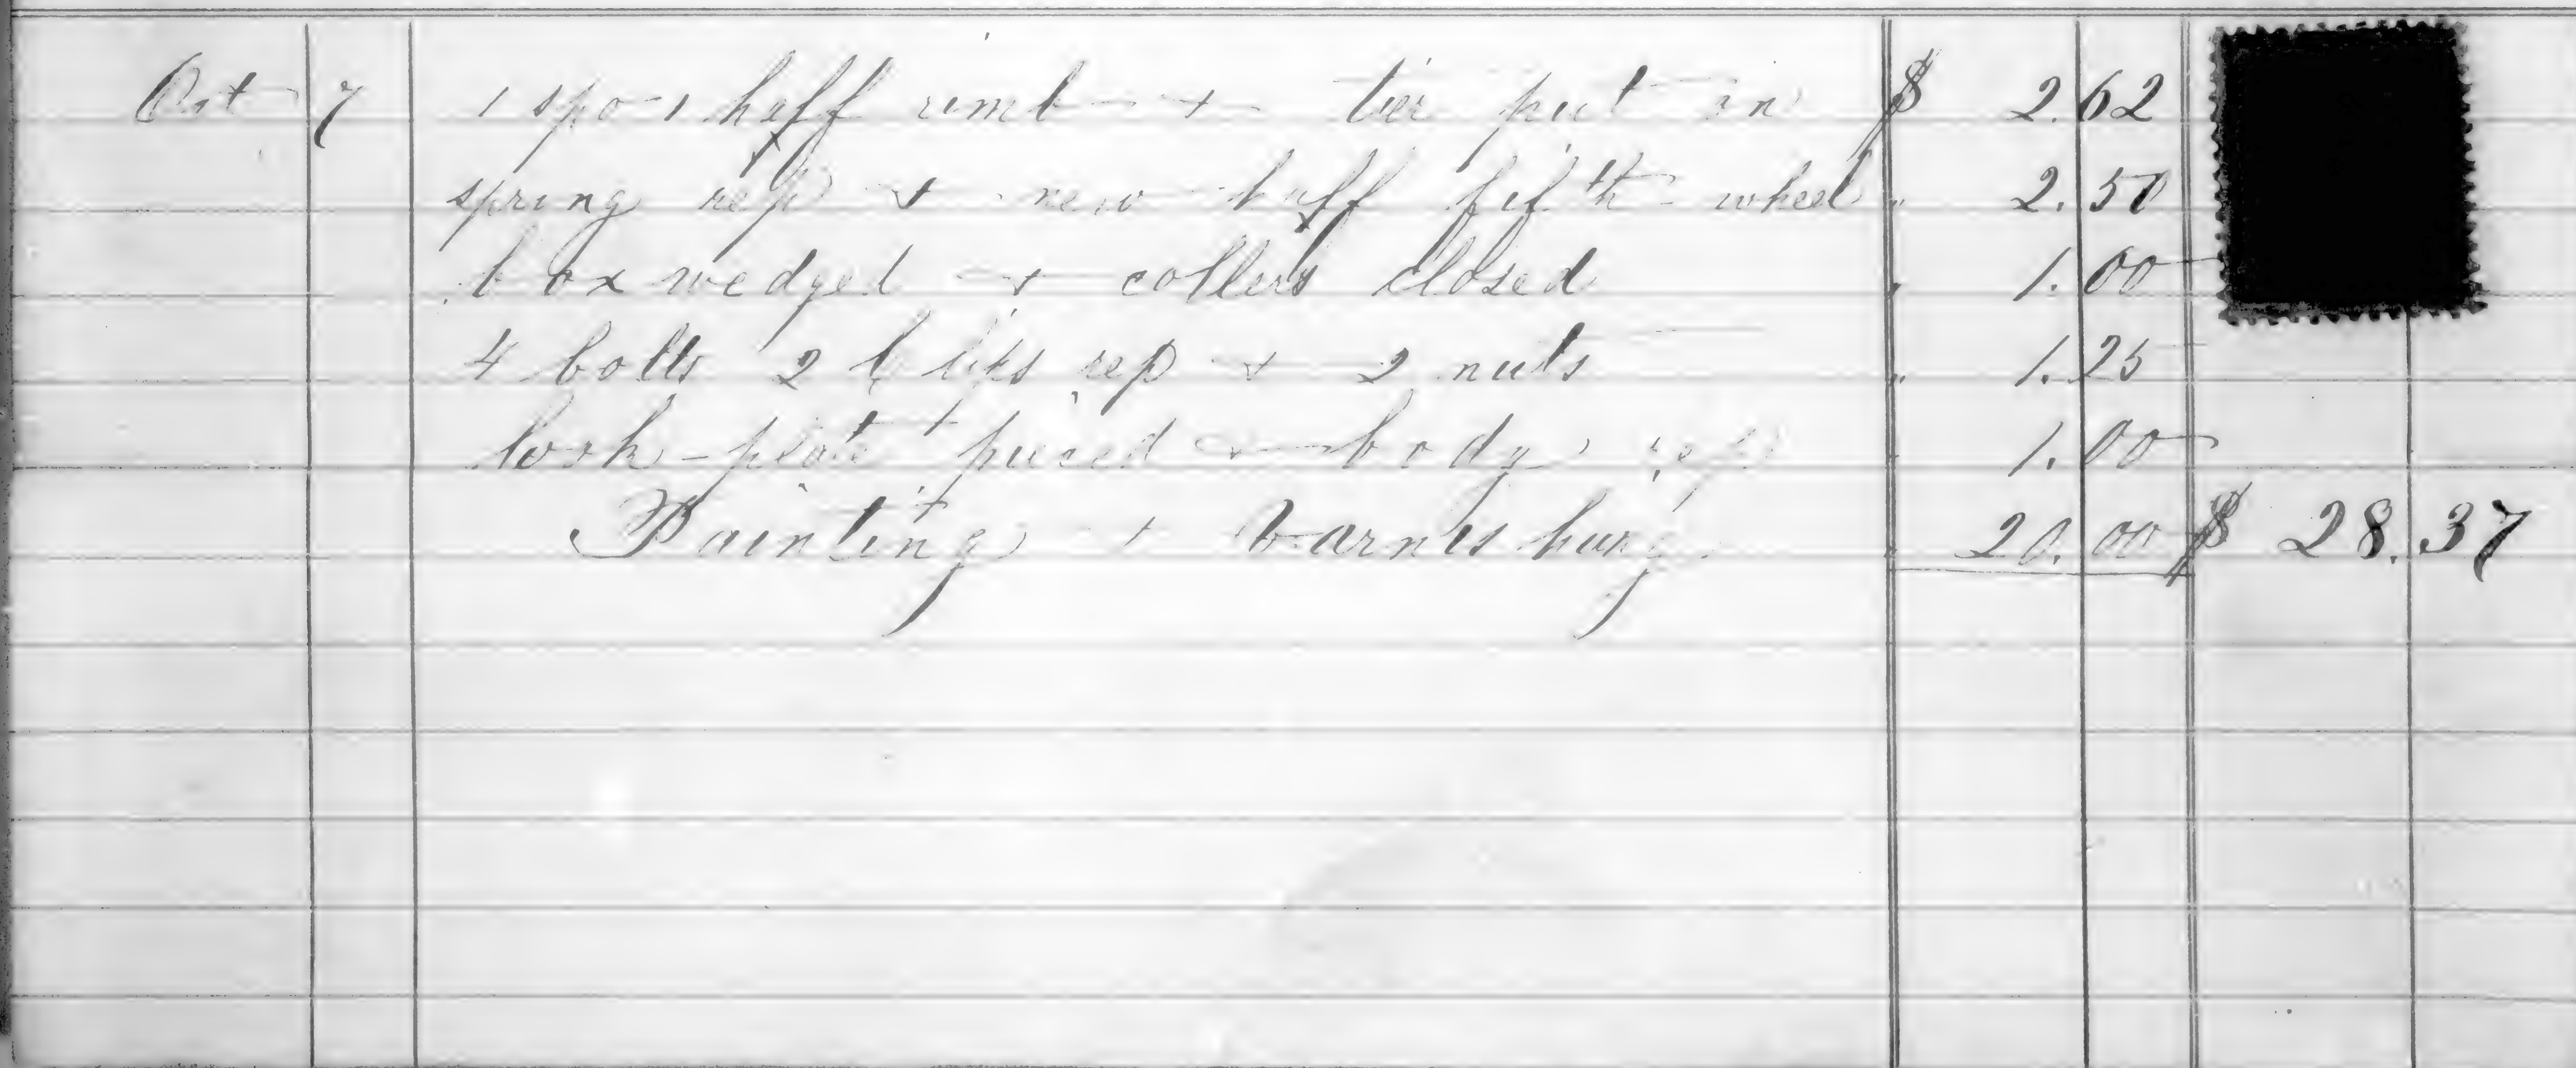 Oct 7 1 spo 1 heff rimb + tier put in $ 2.62
spring rep + new haff fifth wheel " 2.50
box wedged + collers closed " 1.00
4 bolts 2 clips rep + 2 nuts " 1.25
plate pieced + body rep " 1.00
Painting + Varnishing " 20.00 $ 28.37